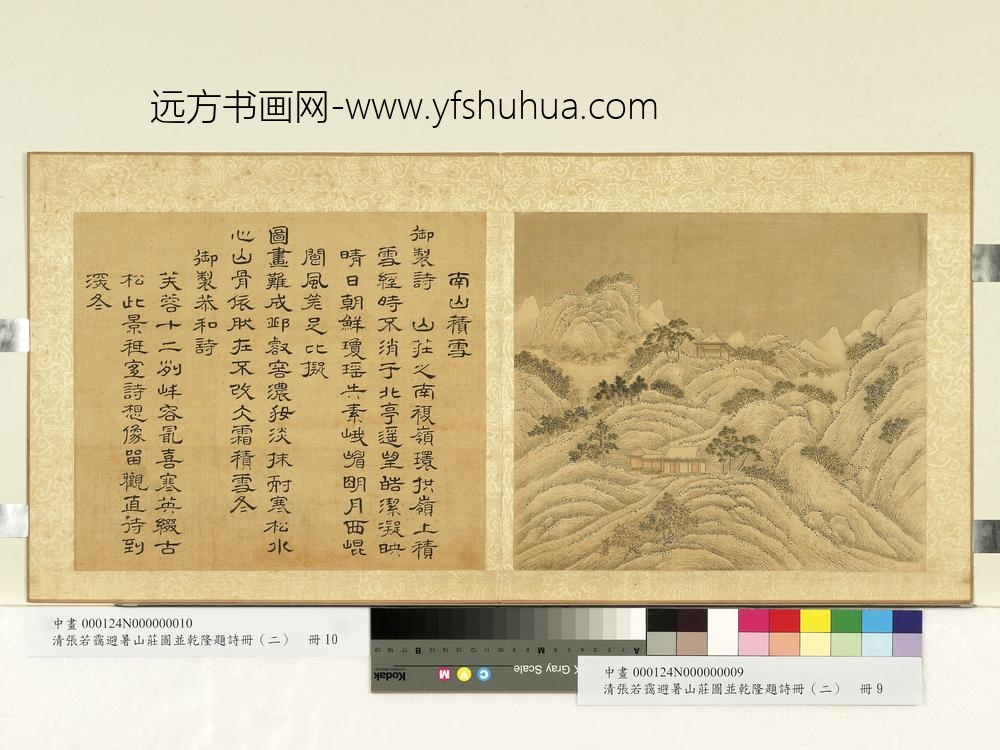 远方书画网-www.yfshuhua.com
南山積雪
御製詩 山莊之南複嶺環拱嶺上積
雪經時不消于北亭遥望皓潔凝映
晴日朝鮮瓊瑶失素峨嵋明月西崐
閬風差足比擬
圖畫難成邱壑容濃粧淡抹耐寒松水
心山骨依然在不改仌霜積雪冬
御製恭和詩
芙蓉十二列峰容最喜寒英綴古
松此景祗宜詩想像留觀直待到
深冬
中畫 000124N000000010
清張若靄避暑山莊圖並乾隆題詩冊（二） 冊10
中畫 000124N000000009
清張若靄避暑山莊圖並乾隆題詩冊（二） 冊9
Kodak
M Y C
K Gray Scale
A 1 2 3 4 5 6 M 8 9 10 11 12 13 14 15 B 17 18 19